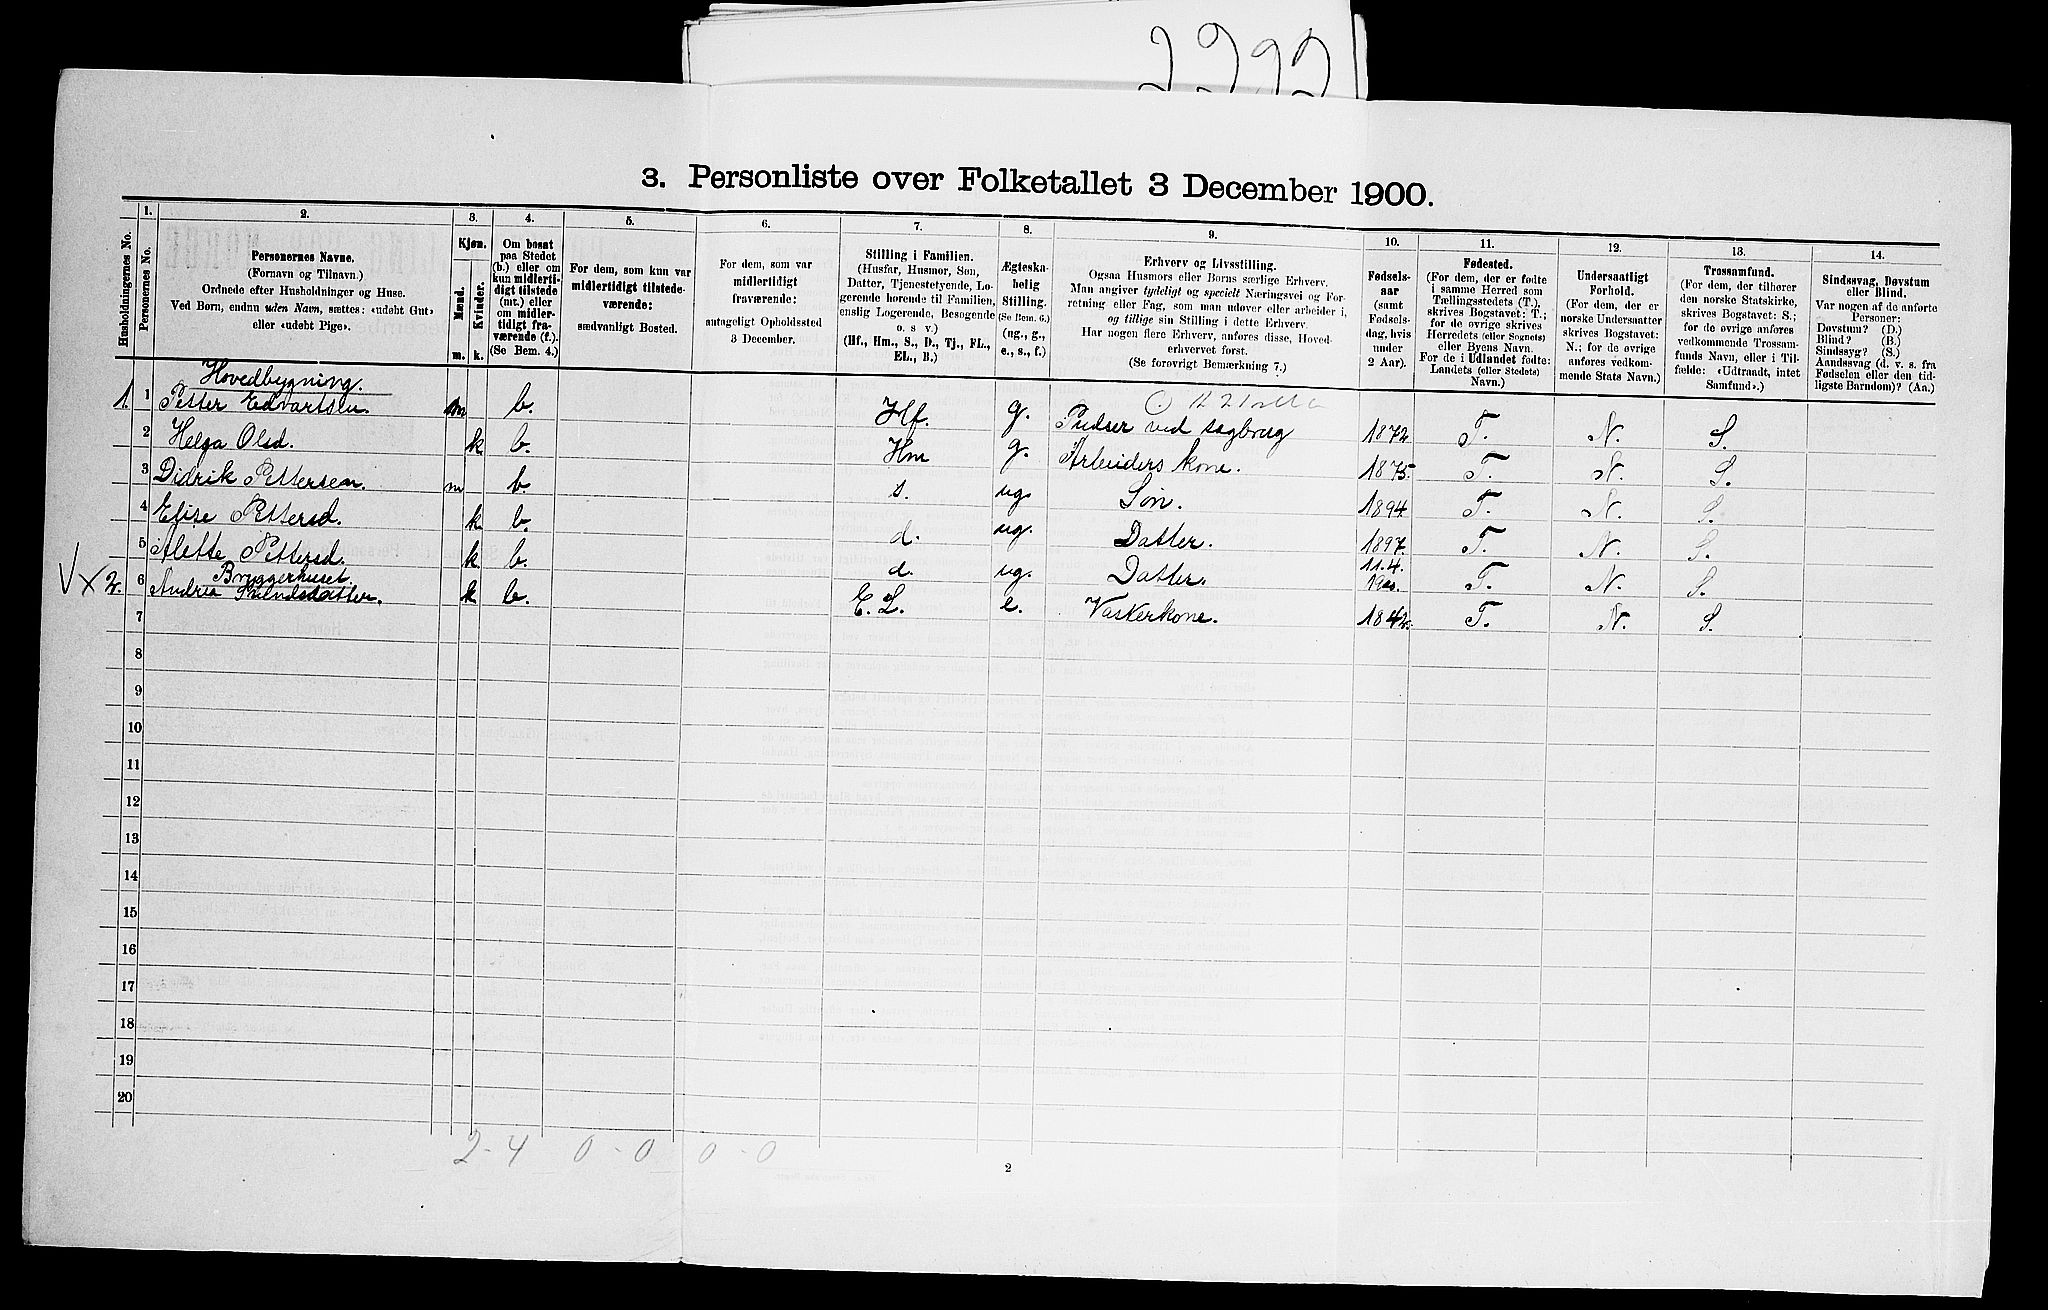 2292
3. Personliste over Folketallet 3 December 1900.
Husholdningernes No.
1.
Personernes No.
2.
Personernes Navne.
(Fornavn og Tilnavn.)
Ordnede efter Husholdninger og Huse.
Ved Børn, endnu uden Navn, sættes: «udøbt Gut»
eller «udøbt Pige».
3.
Kjøn.
Mænd.
Kvinder.
m. k.
4.
Om bosat
paa Stedet
(b.) eller om
kun midlerti-
digt tilstede
(mt.) eller
om midler-
tidigt fra-
værende (f.).
(Se Bem. 4.)
5.
For dem, som kun var
midlertidigt tilstede-
værende:
sædvanligt Bosted.
6.
For dem, som var
midlertidigt
fraværende:
antageligt Opholdssted
3 December.
7.
Stilling i Familien.
(Husfar, Husmor, Søn,
Datter, Tjenestetyende, Lo-
gerende hørende til Familien,
enslig Logerende, Besøgende
o. s v.)
(Hf., Hm., S., D., Tj., FL.,
EL., B.)
8.
Ægteska-
belig
Stilling.
(Se Bem. 6.)
(ug., g.,
e., s., f.)
9.
Erhverv og Livsstilling.
Ogsaa Husmors eller Børns særlige Erhverv.
Man angiver tydeligt og specielt Næringsvei og For-
retning eller Fag, som man udøver eller arbeider i,
og tillige sin Stilling i dette Erhverv.
Har nogen flere Erhverv, anføres disse, Hoved-
erhvervet først.
(Se forøvrigt Bemærkning 7.)
10.
Fødsels-
aar
(samt
Fødsels-
dag, hvis
under
2 Aar).
11.
Fødested.
(For dem, der er fødte
i samme Herred som
Tællingsstedets (T.),
skrives Bogstavet: T.;
for de øvrige skrives
Herredets (eller Sognets)
eller Byens Navn.
For de i Udlandet fødte:
Landets (eller Stedets)
Navn.)
12.
Undersaatligt
Forhold.
(For dem, der er
norske Undersaatter
skrives Bogstavet:
N.; for de øvrige
anføres vedkom-
mende Stats Navn.)
13.
Trossamfund.
(For dem, der tilhører
den norske Statskirke,
skrives Bogstavet: S.;
for de øvrige anføres
vedkommende Trossam-
funds Navn, eller i Til-
fælde: «Udtraadt, intet
Samfund».)
14.
Sindssvag, Døvstum
eller Blind.
Var nogen af de anførte
Personer:
Døvstum? (D.)
Blind? (B.)
Sindssyg? (S.)
Aandssvag (d. v. s. fra
Fødselen eller den tid-
ligste Barndom)? (Aa.)
Hovedbygning.
1. 1 Petter Edvartsen. m b. Hf. g. Pudser ved sagbrug 1872 T. N. S.
2 Helga Olsd. k b. Hm g. Arbeiders kone. 1875. T. N. S.
3 Didrik Pettersen. m b. s. ug. Søn. 1894. T. N. S.
4 Elise Pettersd. k b. d. ug. Datter. 1897. T. N. S.
5 Alette Pettersd. k b. d. ug. Datter. 11.4. 1900. T. N. S.
Bryggerhuset.
V x 2. 6 Andrea Svendsdatter. k b. E. L. e. Vaskerkone. 1842. T. N. S.
7
8
9
10
11
12
13
14
15
16
17
18
19
20
2-4 0-0 0-0
2